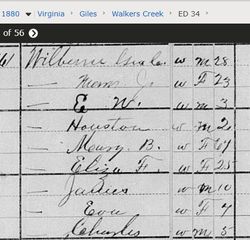 1880 Virginia Giles Walkers Creek ED 34
of 56
Wilburn Charles w m 28
— J. w F 23
— E W. w m 3
— Houston w m 2
— Mary B. w F
— Eliza F. w F 25
— Julius w m 10
— Eva F 7
— Charles w m 5